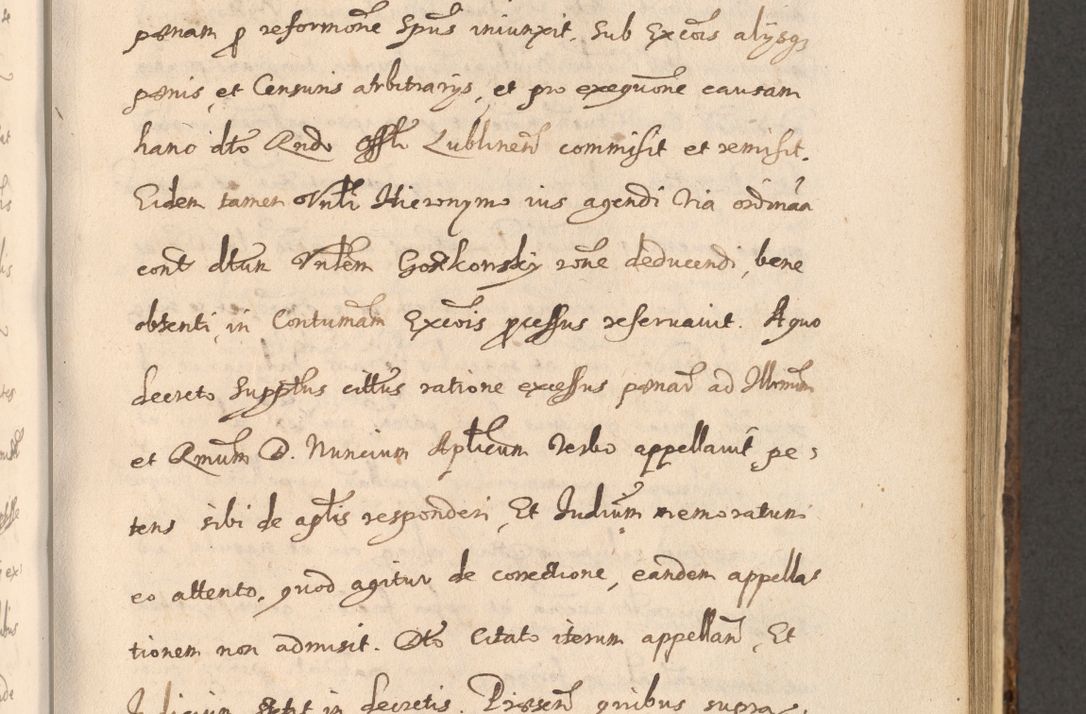 pœnam ꝑ reformōne Spūs iniunxit. Sub Excōis alÿsq3
pœnis, et Censuris arbitrarÿs, et pro exequūone causam
hanc dc̄to Rndo Offli Lublinen̄ commisit et remisit.
Eidem tamen Vnbli Hieronymo ius agendi via ordinaa
cont̄ dc̄tum Vnblem Goskowskÿ rōne deducendi, bene
obtenti, in Contumām Excōis ꝓcessus reservavit. A quo
decreto Suppl̄tus cittus ratione excessus pœnar̄ ad Illrmum
et Rmum D. Nuncium Aplicum verbo appellavit, pe-
tens sibi de aplis responderi, Et Iudium memoratum
eo attento, quod agitur de correctione, eandem appella-
tionem non admisit. Dc̄to Citato iterum appellan̄, Et
Iudicium stetit in decretis. Præsen̄ quibus supra.